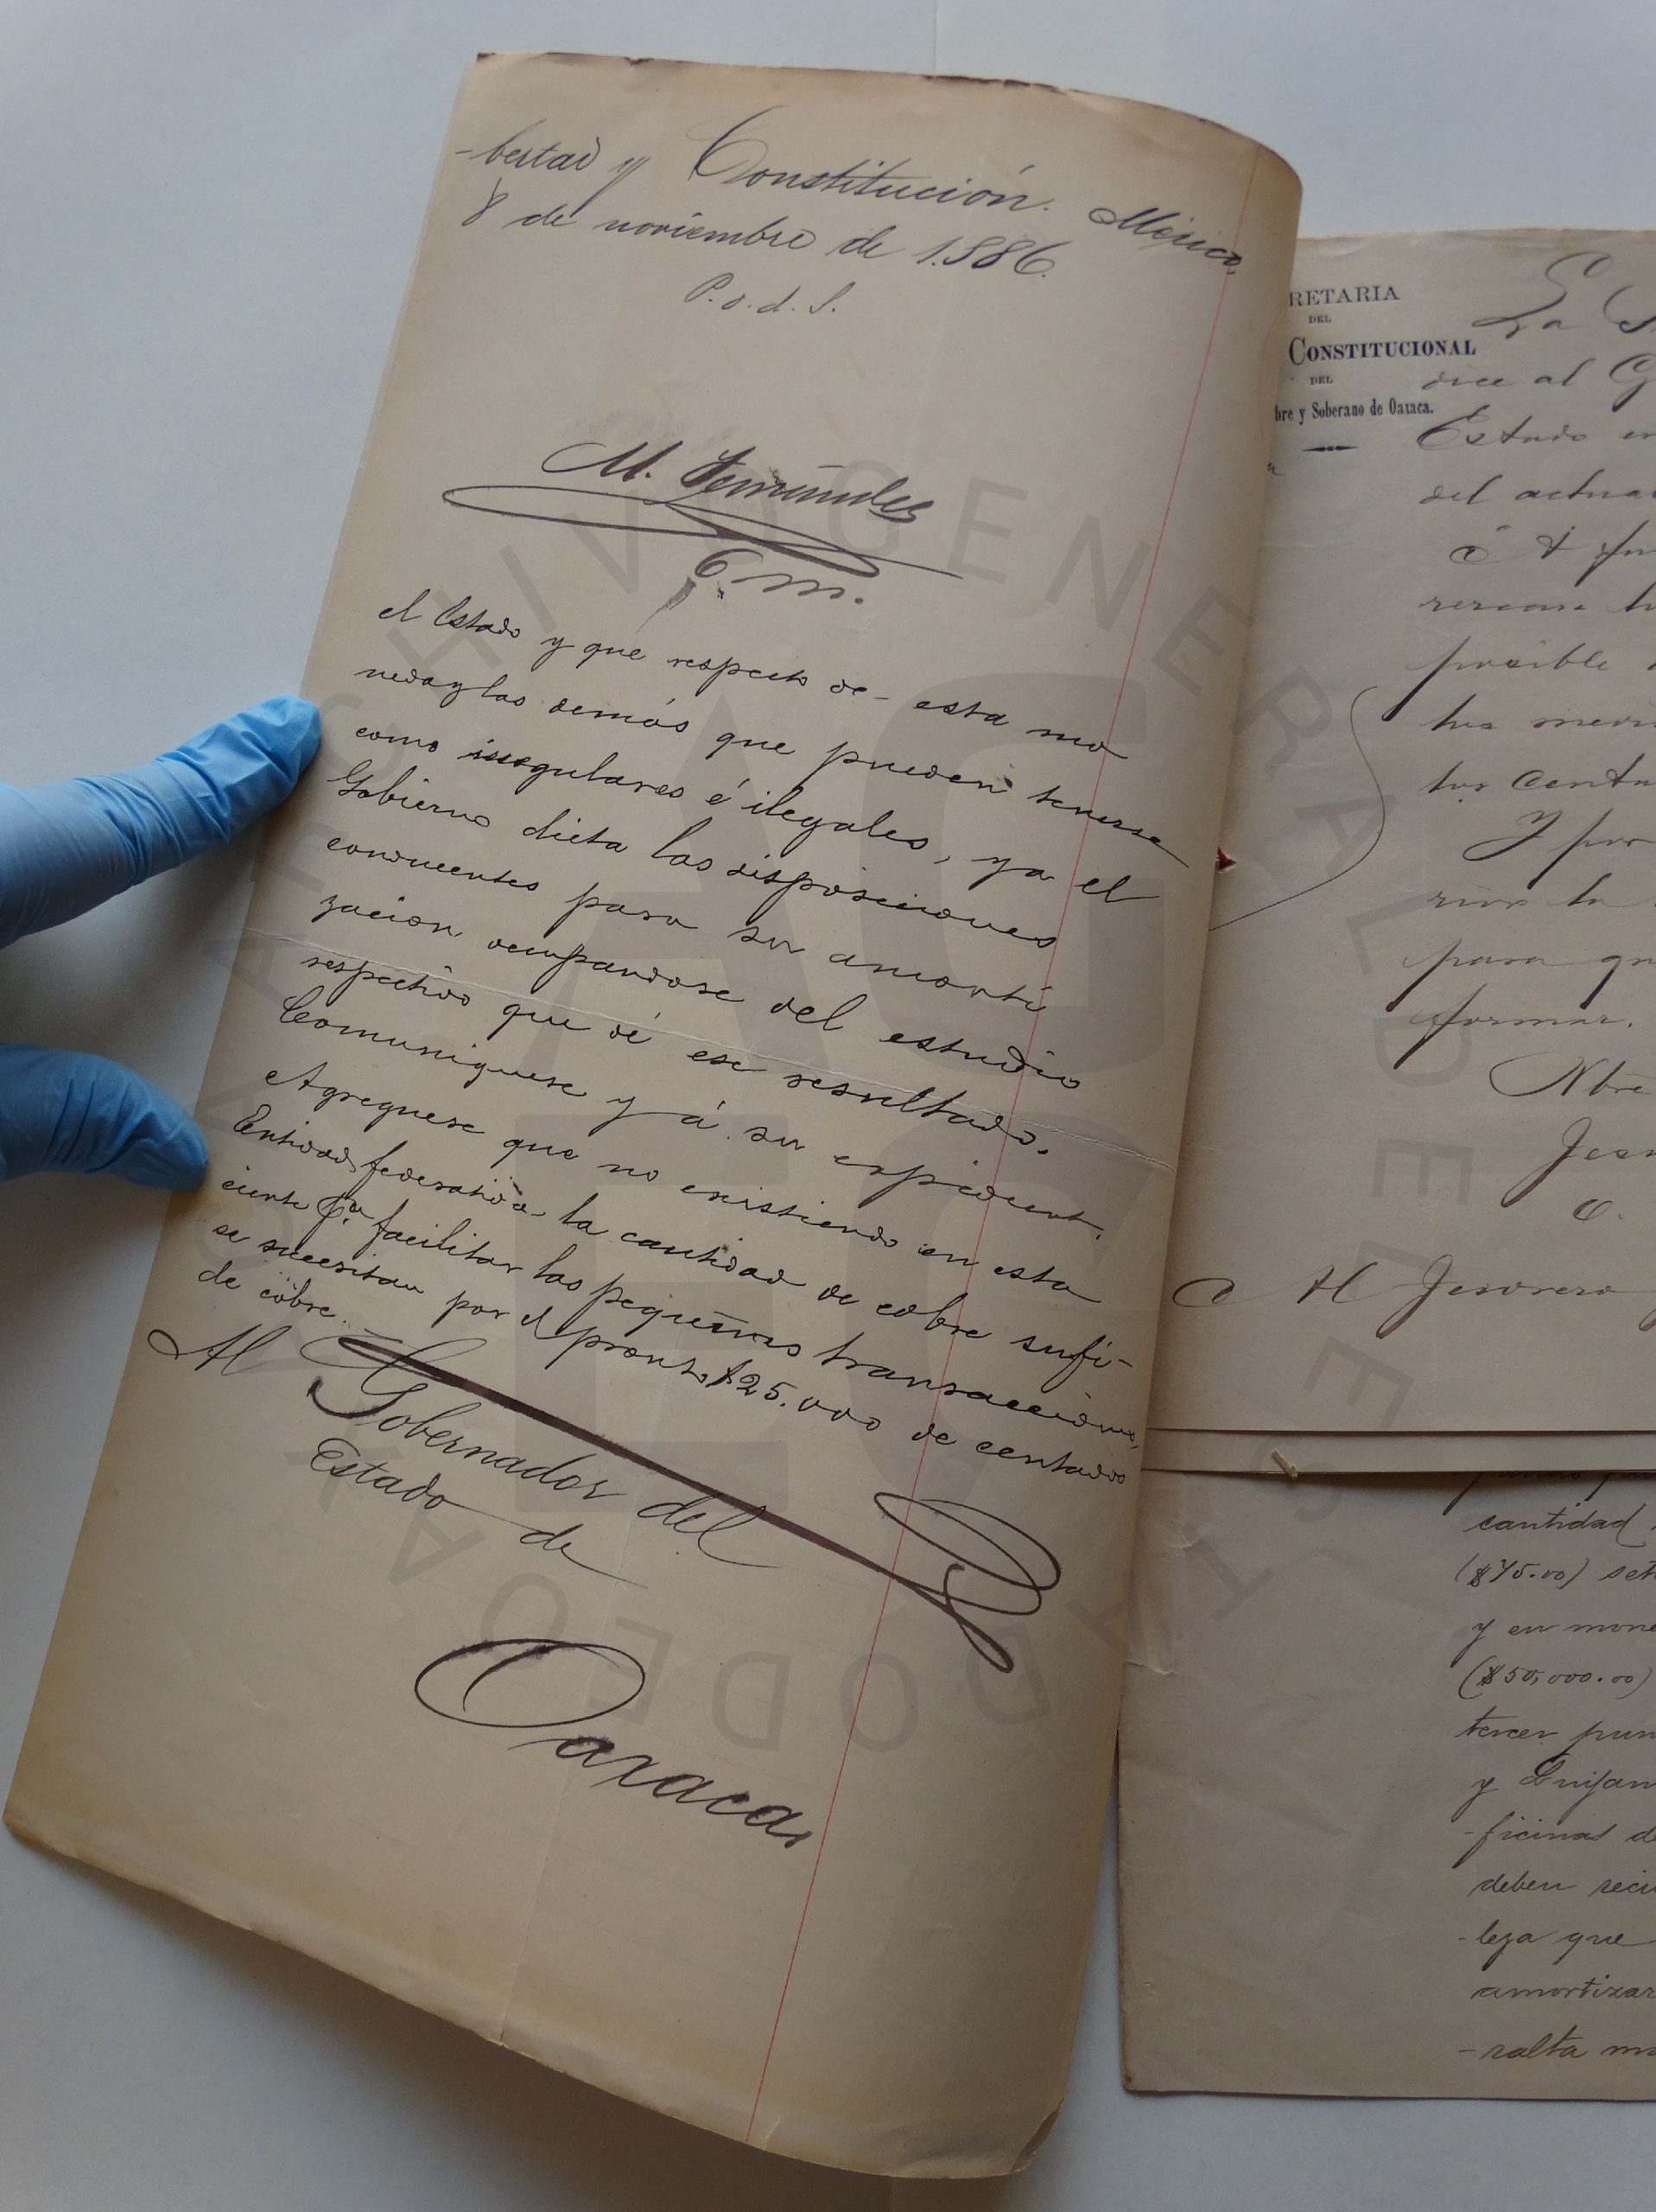 -bertad y Constitución. México
8 de noviembre de 1.886.
P. o. d. S.
M. Fernández
O. m.
el Estado y que respecto de esta mo
neda y las demás que pueden tenerse
como irregulares é ilegales, ya el
Gobierno dicta las disposiciones
conducentes para su amorti
zacion, ocupandose del estudio
respectivo que dé ese resultado.
Comuniquese y á su expediente.
Agreguese que no existiendo en esta
Entidad federativa la cantidad de cobre sufi-
ciente pa. facilitar las pequeñas transacciones,
se necesitan por el pronto $25.000 de centavos
de cobre.
Al Gobernador del
Estado de
Oaxaca
RETARIA
DEL
CONSTITUCIONAL
DEL
bre y Soberano de Oaxaca.
La S
dice al G
Estado en
del actual
posible
tos centa
Y por
para qu
formar.
Nbre
O.
Al Tesorero
cantidad
($75.00) set
y en mone
($50,000.00)
tercer pun
y Guijan
-ficinas de
deben reci
-leza que
amortizar
-ralta mo
ARCHIVO GENERAL DEL ESTADO DE OAXACA
AG
EO